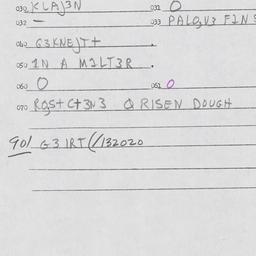 030 KLAJ3N 031 O
032 – 033 PALQUZ FIN
040 G3KNEJT+ .
050 1N A M2LT3R .
060 O 061 O
070 RQST C+3N3 Q RISEN DOUGH
901 G3 IRT(/132020